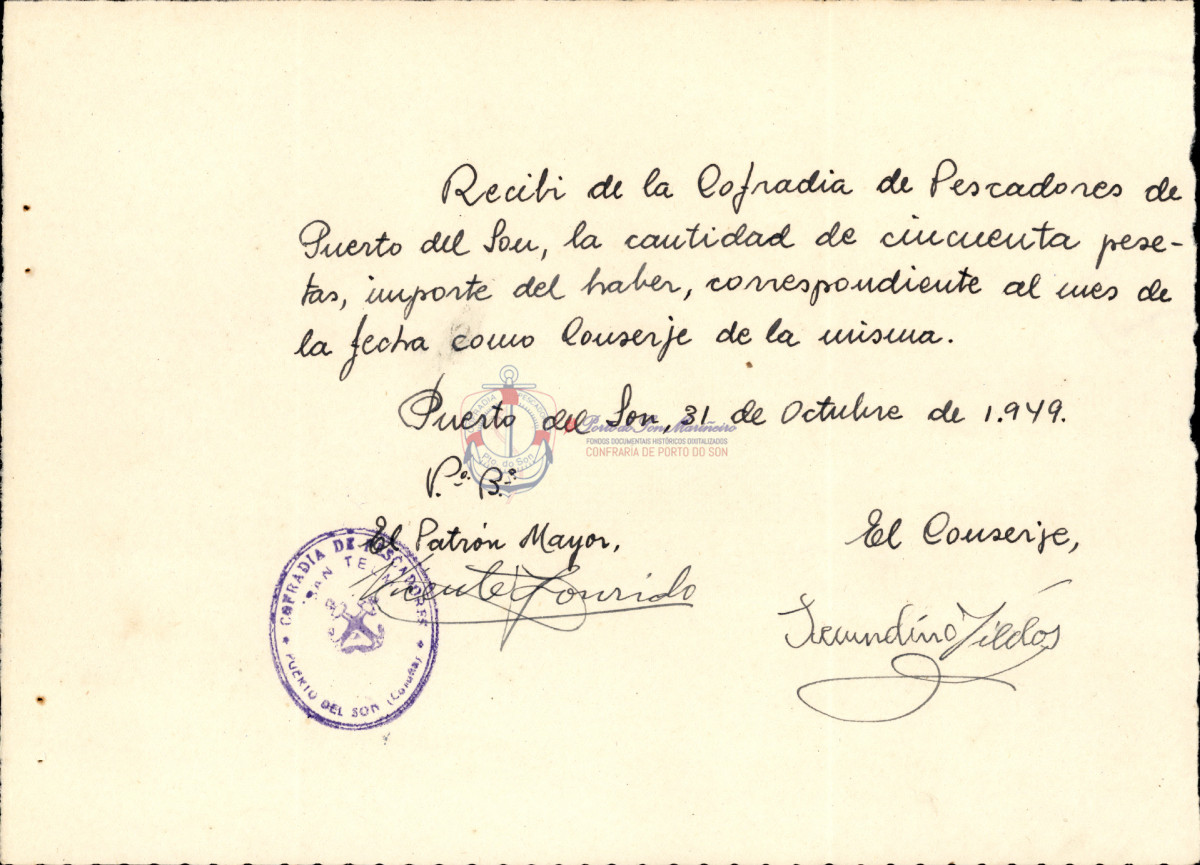 Recibi de la Cofradia de Pescadores de
Puerto del Son, la cantidad de cincuenta pese-
tas, importe del haber, correspondiente al mes de
la fecha como Conserje de la misma.
Puerto del Son, 31 de Octubre de 1.949.
COFRADIA PESCADORES
Pto. do Son
Porto do Son Mariñeiro
FONDOS DOCUMENTAIS HISTÓRICOS DIXITALIZADOS
CONFRARIA DE PORTO DO SON
V.º B.º
El Patrón Mayor,
El Conserje,
Vicente Lourido
Secundino
COFRADIA DE PESCADORES
SAN TELMO
PUERTO DEL SON (Coruña)